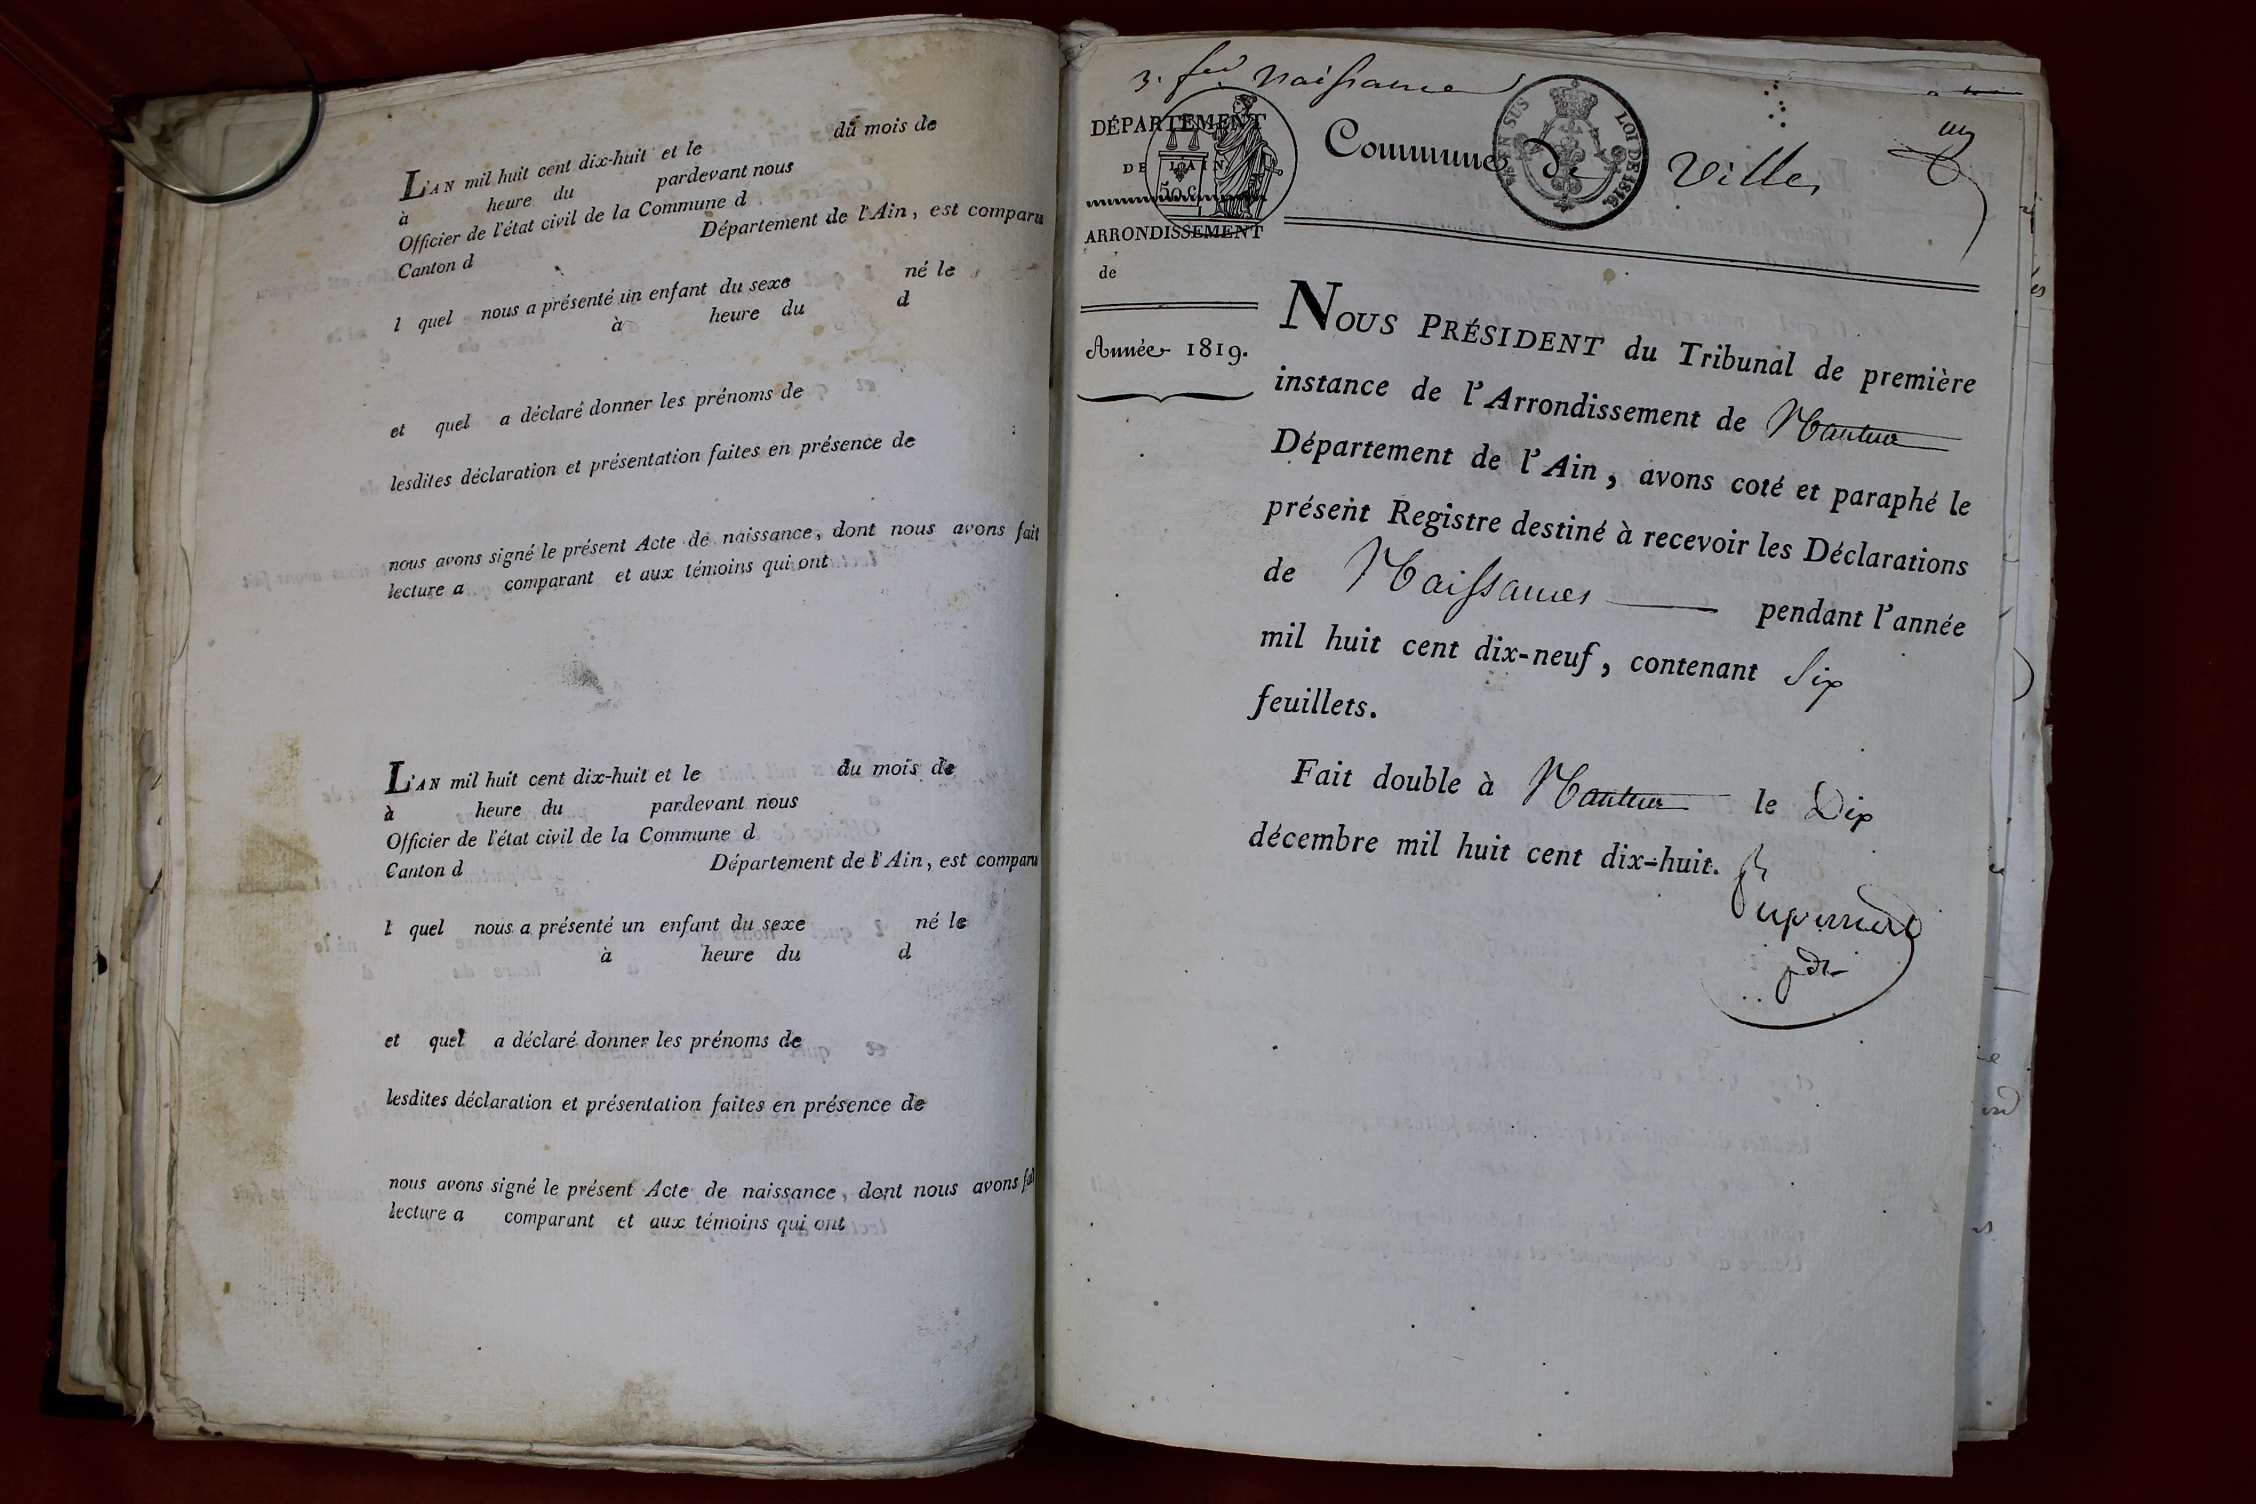 du mois de
L'AN mil huit cent dix-huit et le
à heure du pardevant nous
Officier de l'état civil de la Commune d
Canton d Département de l'Ain, est comparu
l quel nous a présenté un enfant du sexe né le
à heure du d
et quel a déclaré donner les prénoms de
lesdites déclaration et présentation faites en présence de
nous avons signé le présent Acte de naissance, dont nous avons fait
lecture a comparant et aux témoins qui ont
L'AN mil huit cent dix-huit et le du mois de
à heure du pardevant nous
Officier de l'état civil de la Commune d
Canton d Département de l'Ain, est comparu
l quel nous a présenté un enfant du sexe né le
à heure du d
et quel a déclaré donner les prénoms de
lesdites déclaration et présentation faites en présence de
nous avons signé le présent Acte de naissance, dont nous avons fai
lecture a comparant et aux témoins qui ont
3. naissance
DÉPARTEMENT
DE L'AIN
50 C.
ARRONDISSEMENT
de
Année 1819.
Commune de Ville
EN SUS LOI DE 1816.
NOUS PRÉSIDENT du Tribunal de première
instance de l'Arrondissement de Nantua
Département de l'Ain, avons coté et paraphé le
présent Registre destiné à recevoir les Déclarations
de Naissances pendant l'année
mil huit cent dix-neuf, contenant Six
feuillets.
Fait double à Nantua le Dix
décembre mil huit cent dix-huit.